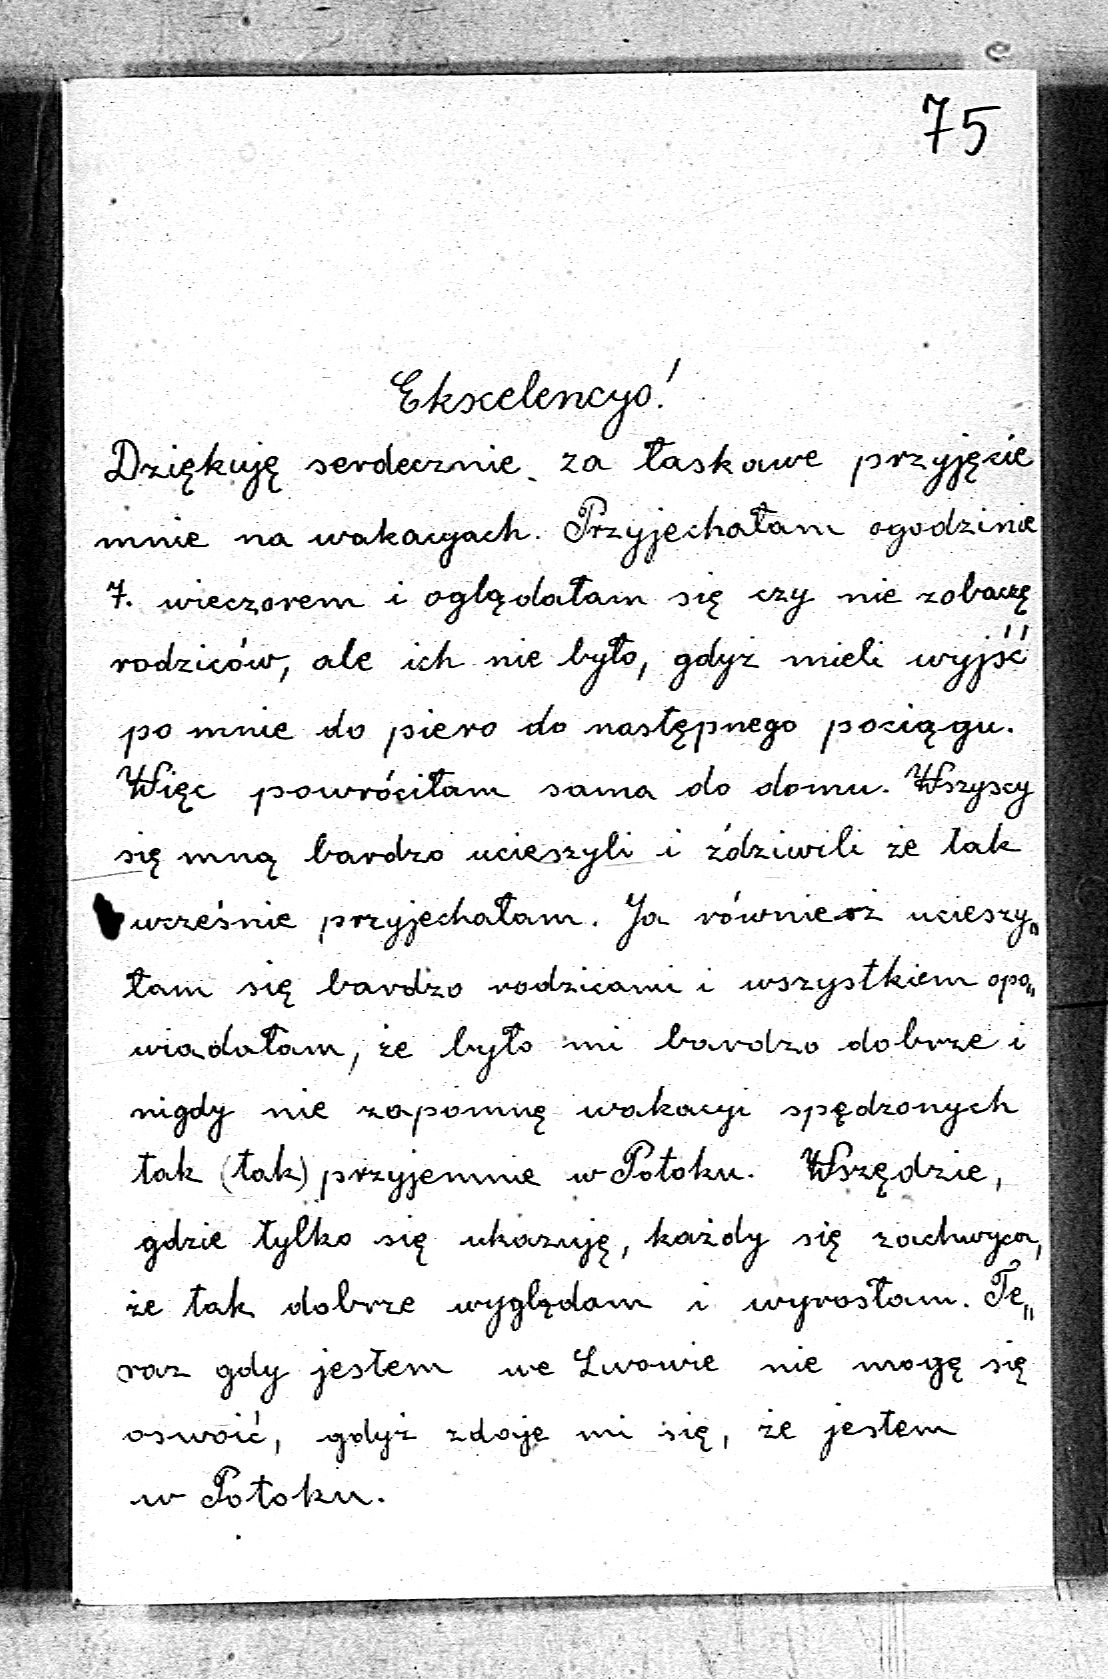 75
Ekscelencyo!
Dziękuję serdecznie za łaskawe przyjęcie
mnie na wakacyach. Przyjechałam ogodzinie
7. wieczorem i oglądałam się czy nie zobaczę
rodziców, ale ich nie było, gdyż mieli wyjść
po mnie do piero do następnego pociągu.
Więc powróciłam sama do domu. Wszyscy
się mną bardzo ucieszyli i ździwili że tak
wcześnie przyjechałam. Ja również ucieszy„
łam się bardzo rodzicami i wszystkiem opo„
wiadałam, że było mi bardzo dobrze i
nigdy nie zapomnę wakacyi spędzonych
tak (tak) przyjemnie w Potoku. Wszędzie,
gdzie tylko się ukazuję, każdy się zachwyca,
że tak dobrze wyglądam i wyrosłam. Te„
raz gdy jestem we Lwowie nie mogę się
oswoić, gdyż zdaje mi się, że jestem
w Potoku.